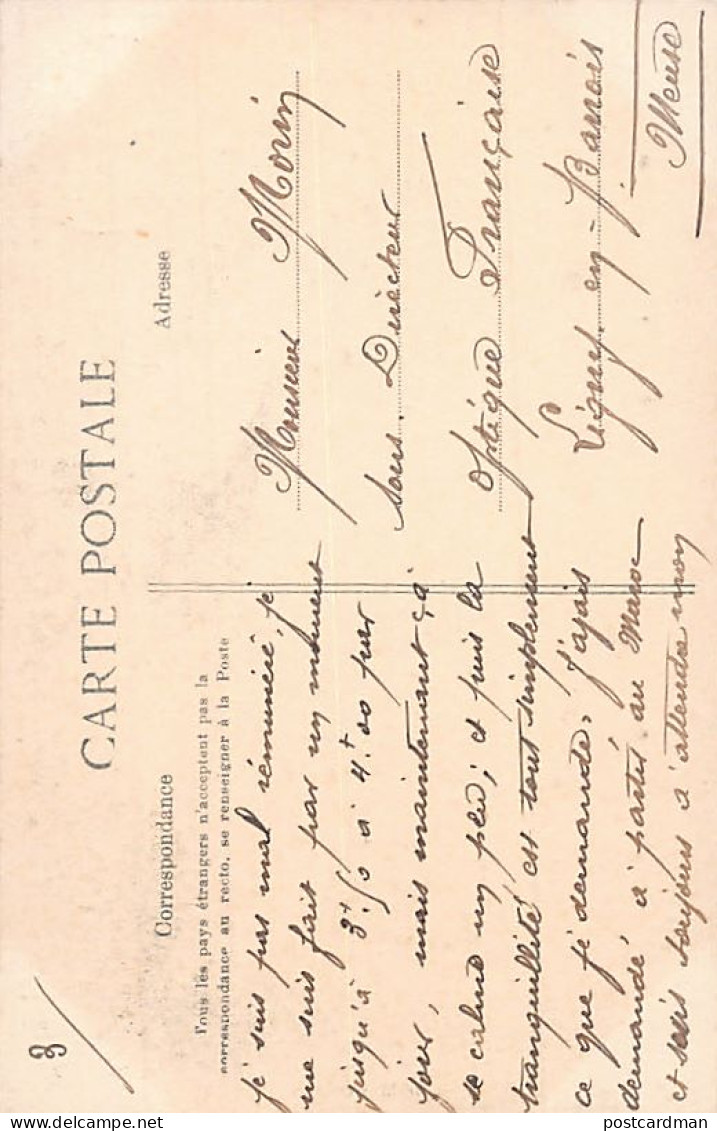 3
CARTE POSTALE
Correspondance
Tous les pays étrangers n'acceptent pas la
correspondance au recto, se renseigner à la Poste
je suis pas mal rémunéré, je
me suis fait par un moment
jusqu'à 3f.50 à 4f.00 par
jour, mais maintenant ça
se calme un peu; et puis la
tranquillité est tout simplement
ce que je demande, j'avais
demandé à partir au Maroc
et suis toujours à attendre mon
Adresse
Monsieur Morin
Sous. Directeur
Optique Française
Ligny-en-Barrois
Meuse
postcardman